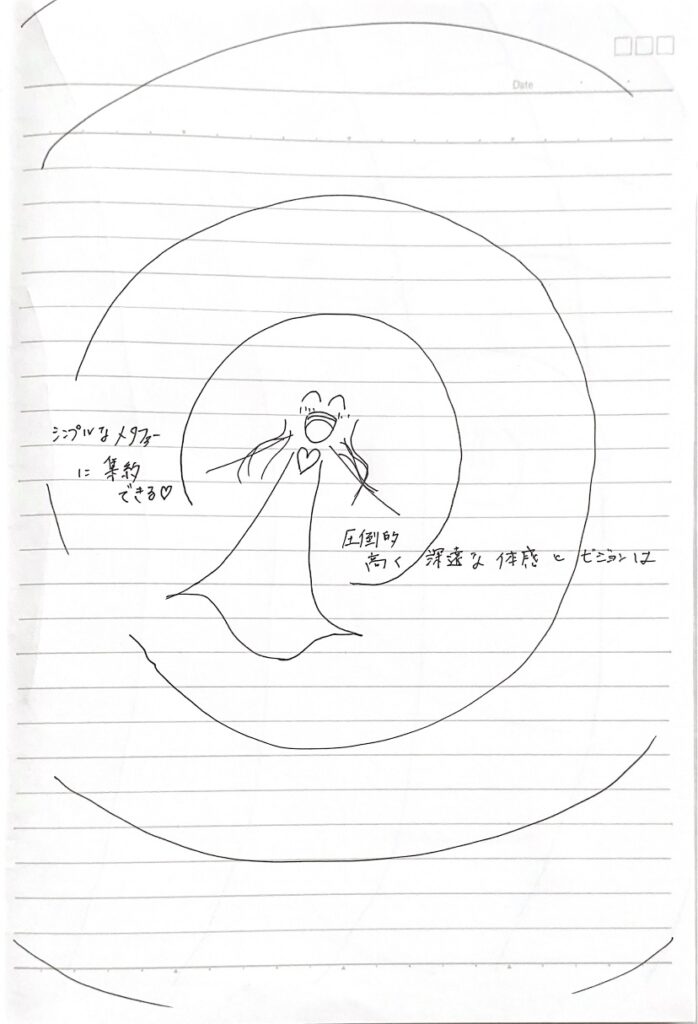 Date
シンプルなメタファー
に集約
できる♡
圧倒的
高く 深遠な 体感と ビジョンは